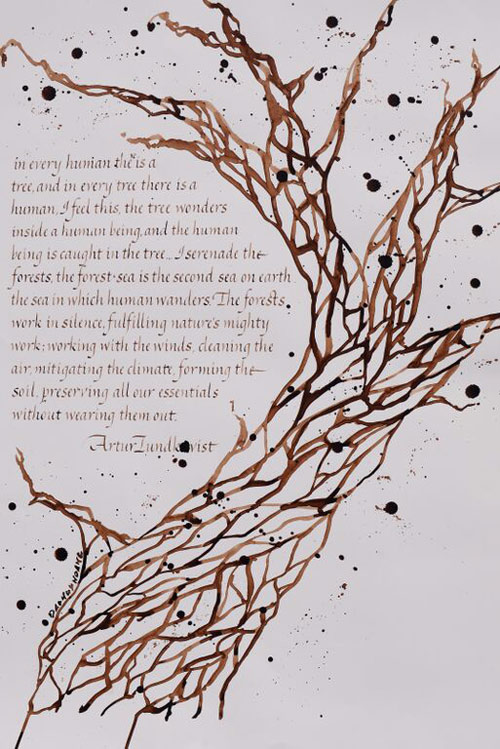 in every human the is a
tree, and in every tree there is a
human, I feel this, the tree wonders
inside a human being, and the human
being is caught in the tree... I serenade the
forests, the forest-sea is the second sea on earth
the sea in which human wanders. The forests
work in silence, fulfilling nature's mighty
work; working with the winds, cleaning the
air, mitigating the climate, forming the
soil, preserving all our essentials
without wearing them out.
Artur Lundkvist